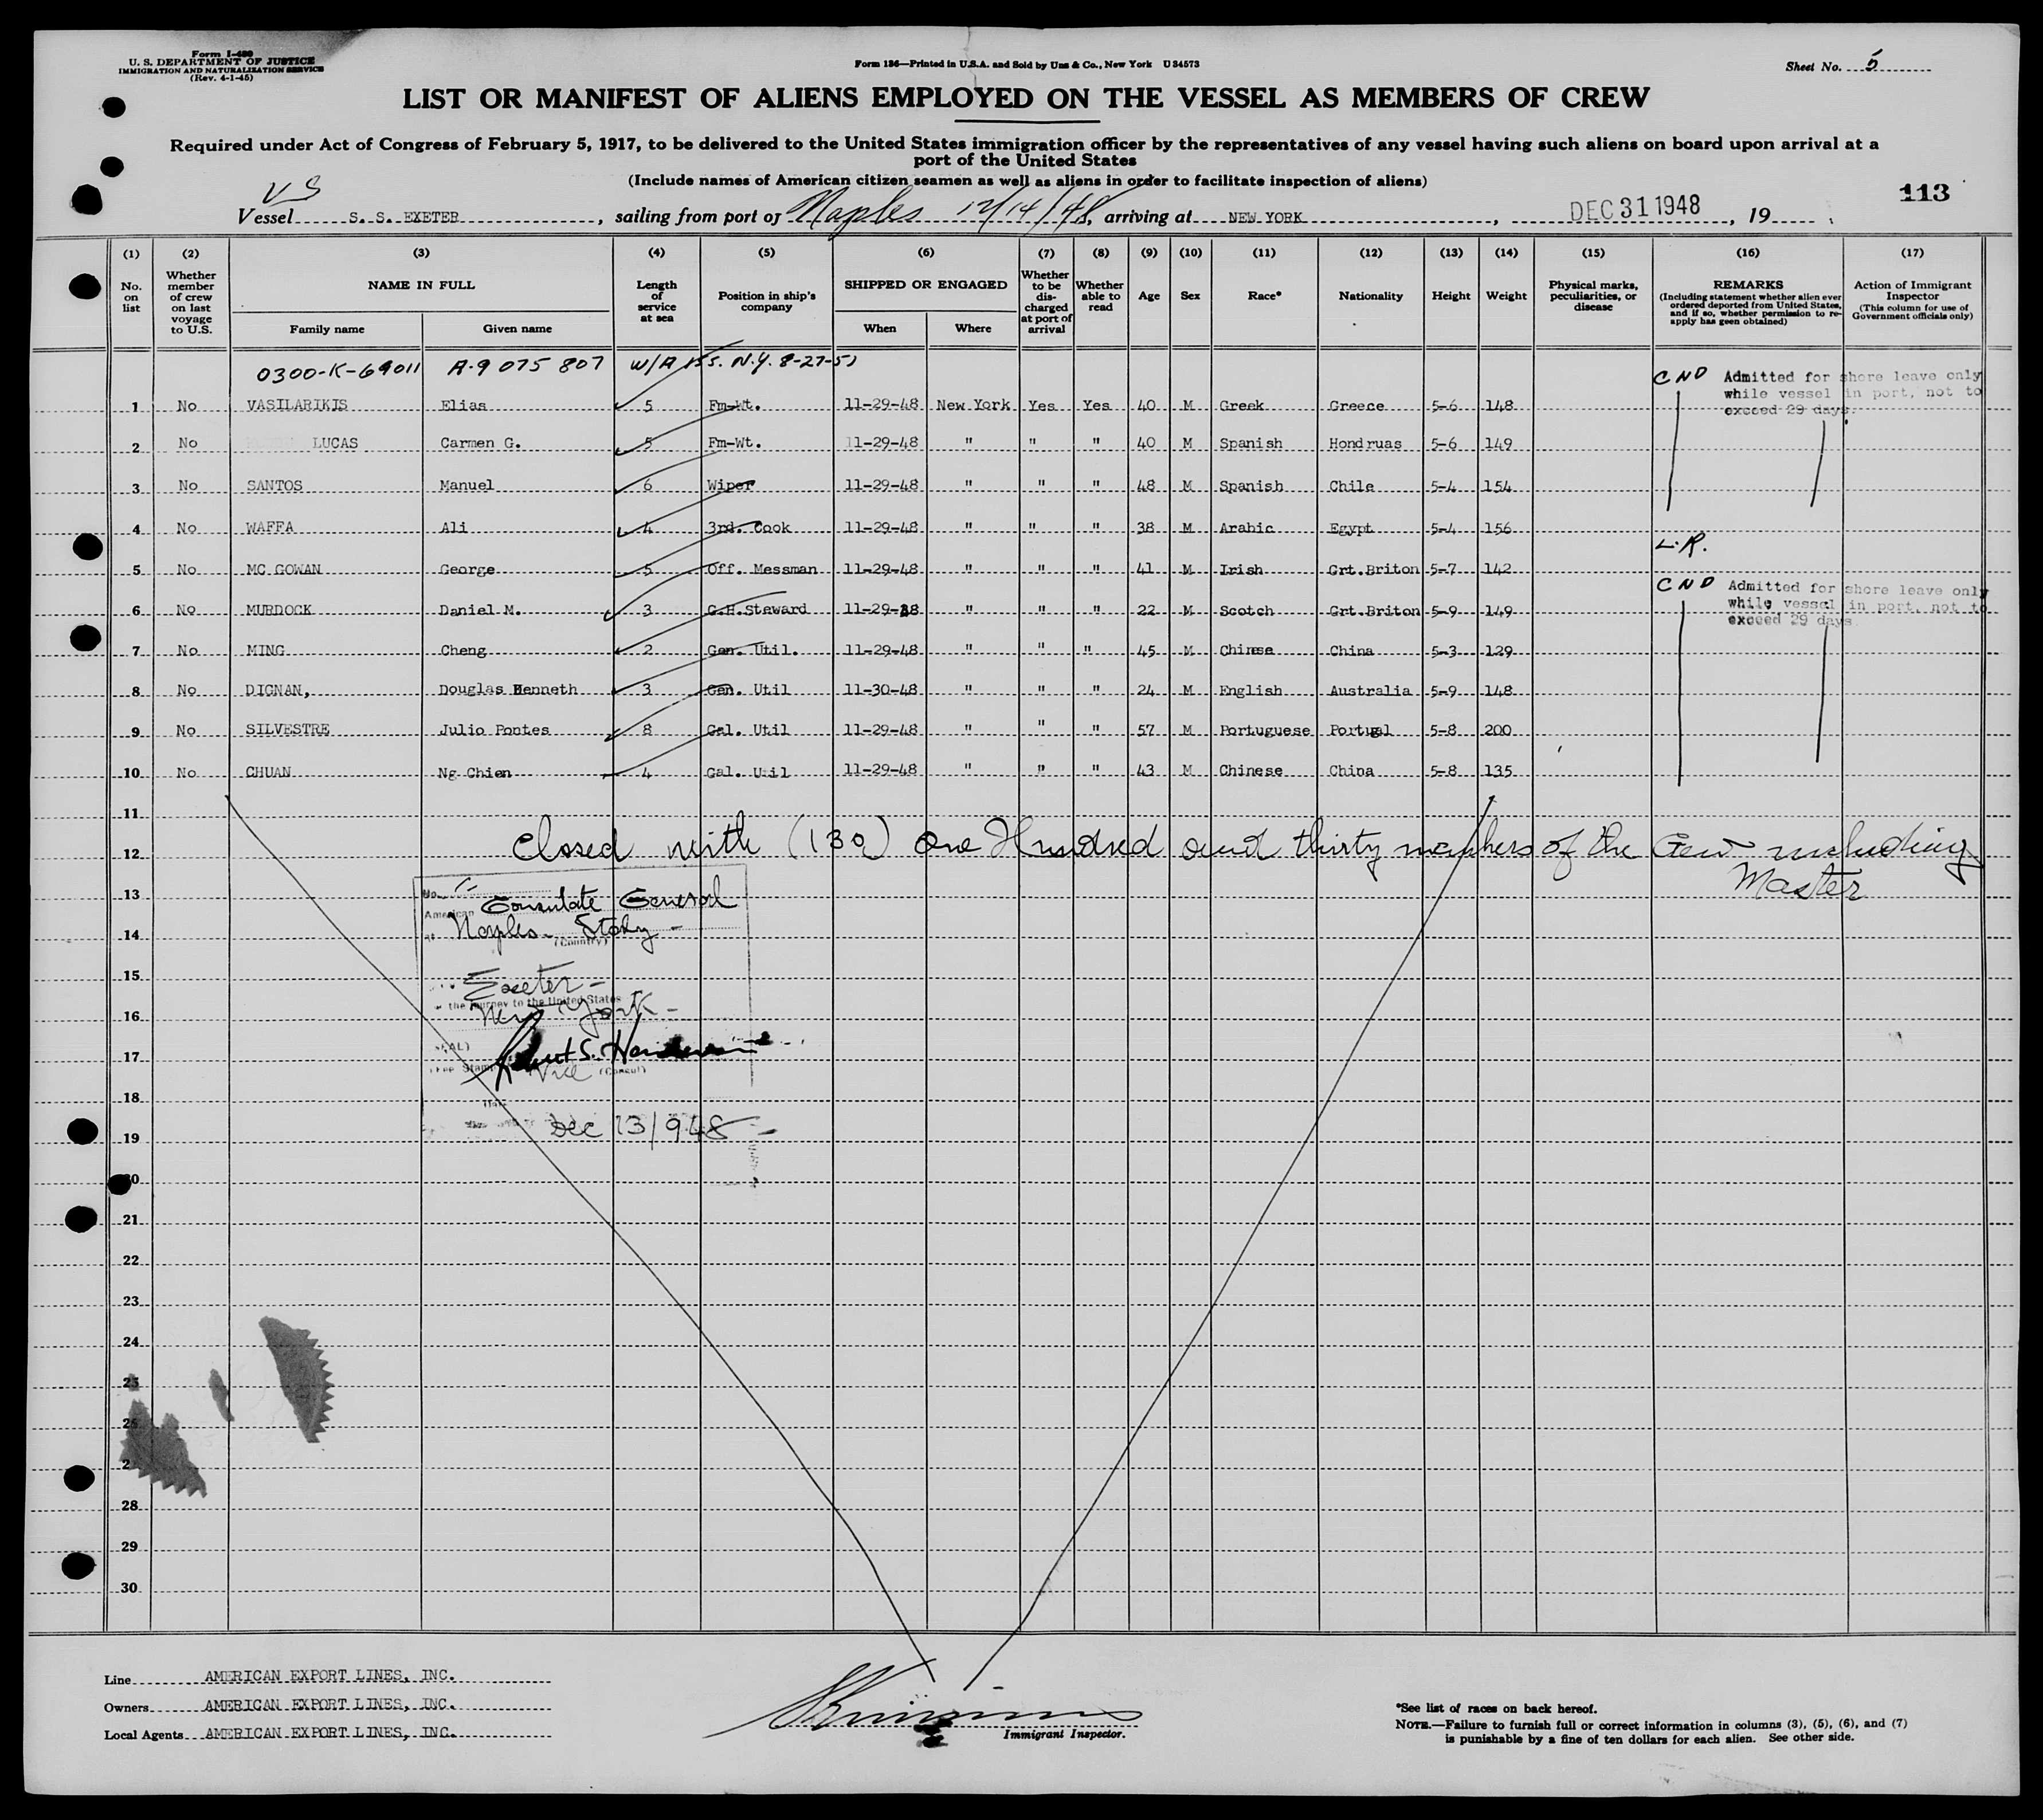 Form I-480
U. S. DEPARTMENT OF JUSTICE
IMMIGRATION AND NATURALIZATION SERVICE
(Rev. 4-1-45)
Form 136—Printed in U.S.A. and Sold by Unz & Co., New York U 34573
Sheet No. 5
LIST OR MANIFEST OF ALIENS EMPLOYED ON THE VESSEL AS MEMBERS OF CREW
Required under Act of Congress of February 5, 1917, to be delivered to the United States immigration officer by the representatives of any vessel having such aliens on board upon arrival at a
port of the United States
(Include names of American citizen seamen as well as aliens in order to facilitate inspection of aliens)
113
VS
Vessel S. S. EXETER, sailing from port of Naples 12/14/48, arriving at NEW YORK, DEC 31 1948, 19
(1) (2) (3) (4) (5) (6) (7) (8) (9) (10) (11) (12) (13) (14) (15) (16) (17)
No. on list
Whether member of crew on last voyage to U.S.
NAME IN FULL
Family name
Given name
Length of service at sea
Position in ship's company
SHIPPED OR ENGAGED
When
Where
Whether to be discharged at port of arrival
Whether able to read
Age
Sex
Race*
Nationality
Height
Weight
Physical marks, peculiarities, or disease
REMARKS
(Including statement whether alien ever ordered deported from United States, and if so, whether permission to re-apply has geen obtained)
Action of Immigrant Inspector
(This column for use of Government officials only)
0300-K-69011 A-9 075 807 W/A N.Y. 8-27-51
CND Admitted for shore leave only
while vessel in port, not to
exceed 29 days.
1 No VASILARIKIS Elias 5 Fm-Wt. 11-29-48 New York Yes Yes 40 M Greek Greece 5-6 148
2 No LUCAS Carmen G. 5 Fm-Wt. 11-29-48 " " " 40 M Spanish Hondruas 5-6 149
3 No SANTOS Manuel 6 Wiper 11-29-48 " " " 48 M Spanish Chile 5-4 154
4 No WAFFA Ali 4 3rd. Cook 11-29-48 " " " 38 M Arabic Egypt 5-4 156
L.R.
5 No MC GOWAN George 5 Off. Messman 11-29-48 " " " 41 M Irish Grt.Briton 5-7 142
CND Admitted for shore leave only
while vessel in port, not to
exceed 29 days
6 No MURDOCK Daniel M. 3 G.H.Steward 11-29-38 " " " 22 M Scotch Grt.Briton 5-9 149
7 No MING Cheng 2 Gen. Util. 11-29-48 " " " 45 M Chinese China 5-3 129
8 No DIGNAN, Douglas Kenneth 3 Gen. Util 11-30-48 " " " 24 M English Australia 5-9 148
9 No SILVESTRE Julio Pontes 8 Gal. Util 11-29-48 " " " 57 M Portuguese Portugal 5-8 200
10 No CHUAN Ng Chien 4 Gal. Util 11-29-48 " " " 43 M Chinese China 5-8 135
11
12 Closed with (130) One Hundred and thirty members of the Crew including
Master
13 No.
American Consulate General
14 Naples - Italy -
(Country)
15 Exeter -
the journey to the United States
16 New York -
17 Robert S.
Vice (Consul)
18
19 Dec 13/948
20
21
22
23
24
25
26
27
28
29
30
Line AMERICAN EXPORT LINES, INC.
Owners AMERICAN EXPORT LINES, INC.
Local Agents AMERICAN EXPORT LINES, INC.
Immigrant Inspector.
*See list of races on back hereof.
NOTE.—Failure to furnish full or correct information in columns (3), (5), (6), and (7)
is punishable by a fine of ten dollars for each alien. See other side.